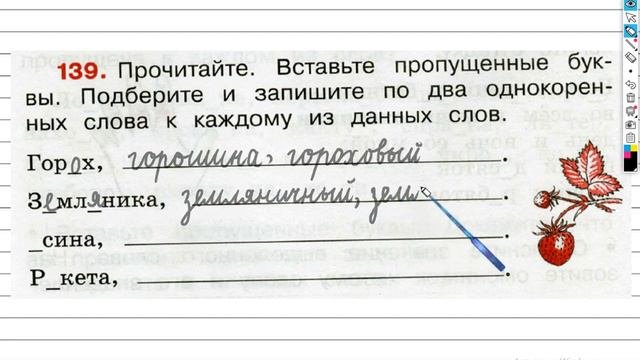 139. Прочитайте. Вставьте пропущенные бук-
вы. Подберите и запишите по два однокорен-
ных слова к каждому из данных слов.
Горох, горошина, гороховый.
Земляника, земляничный, земл
_сина,
Р_кета, .